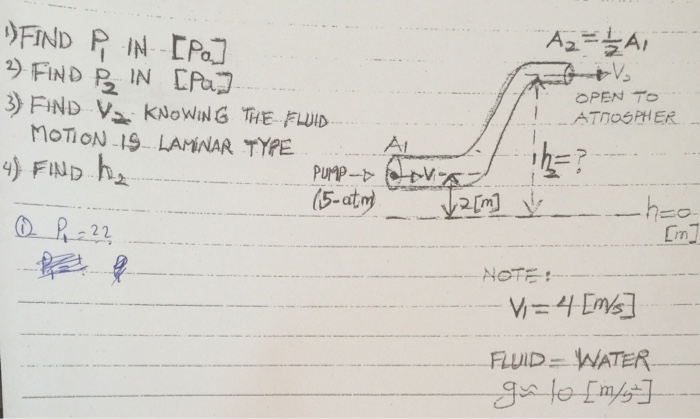 1) FIND P1 IN [Pa]
2) FIND P2 IN [Pa]
3) FIND V2 KNOWING THE FLUID
MOTION IS LAMINAR TYPE
4) FIND h2
① P1 = ??
A2 = 1/2 A1
V2
OPEN TO
ATMOSPHER
A1
h2 = ?
PUMP
V1
(5-atm)
2 [m]
h=0
[m]
NOTE:
V1 = 4 [m/s]
FLUID = WATER
g ≈ 10 [m/s²]